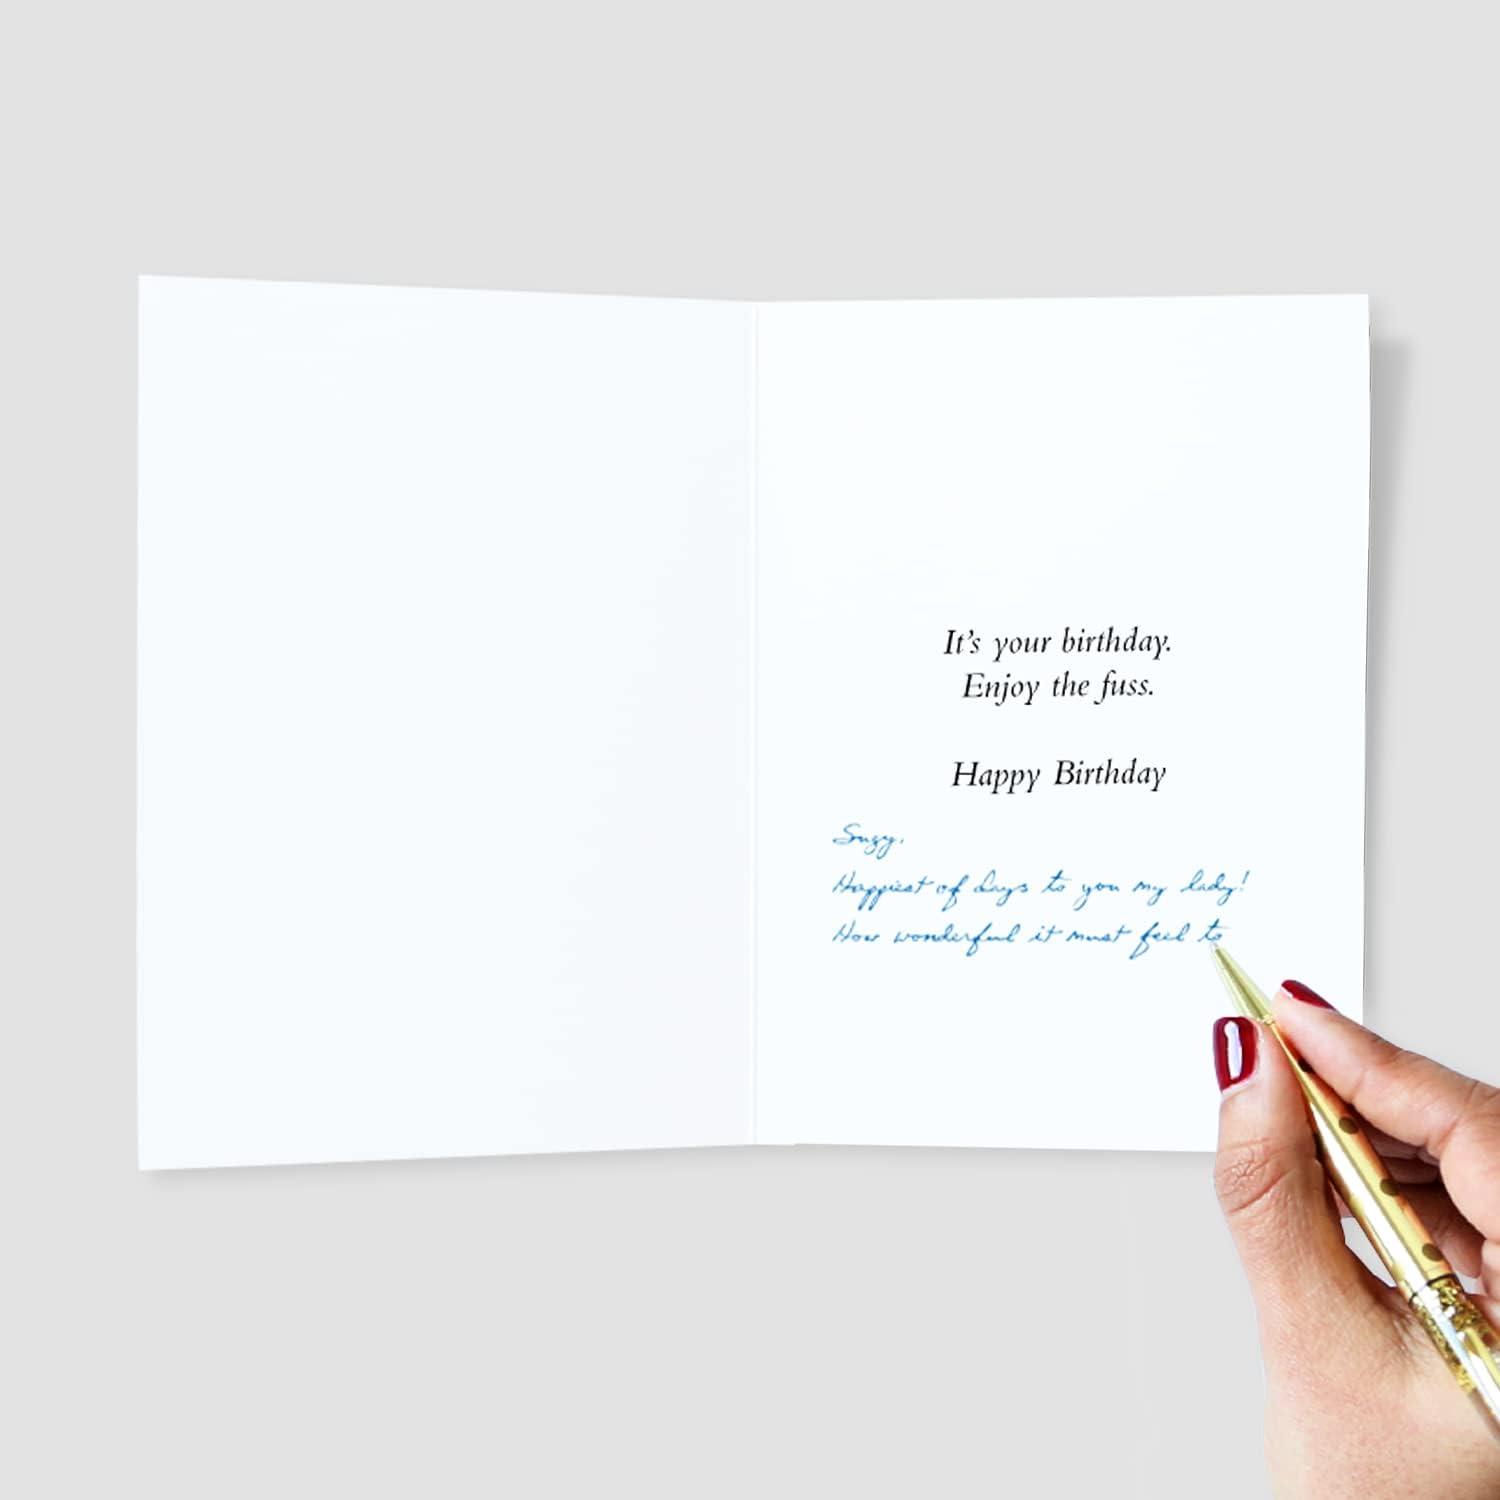 It’s your birthday.
Enjoy the fuss.
Happy Birthday
Suzy,
Happiest of days to you my lady!
How wonderful it must feel to